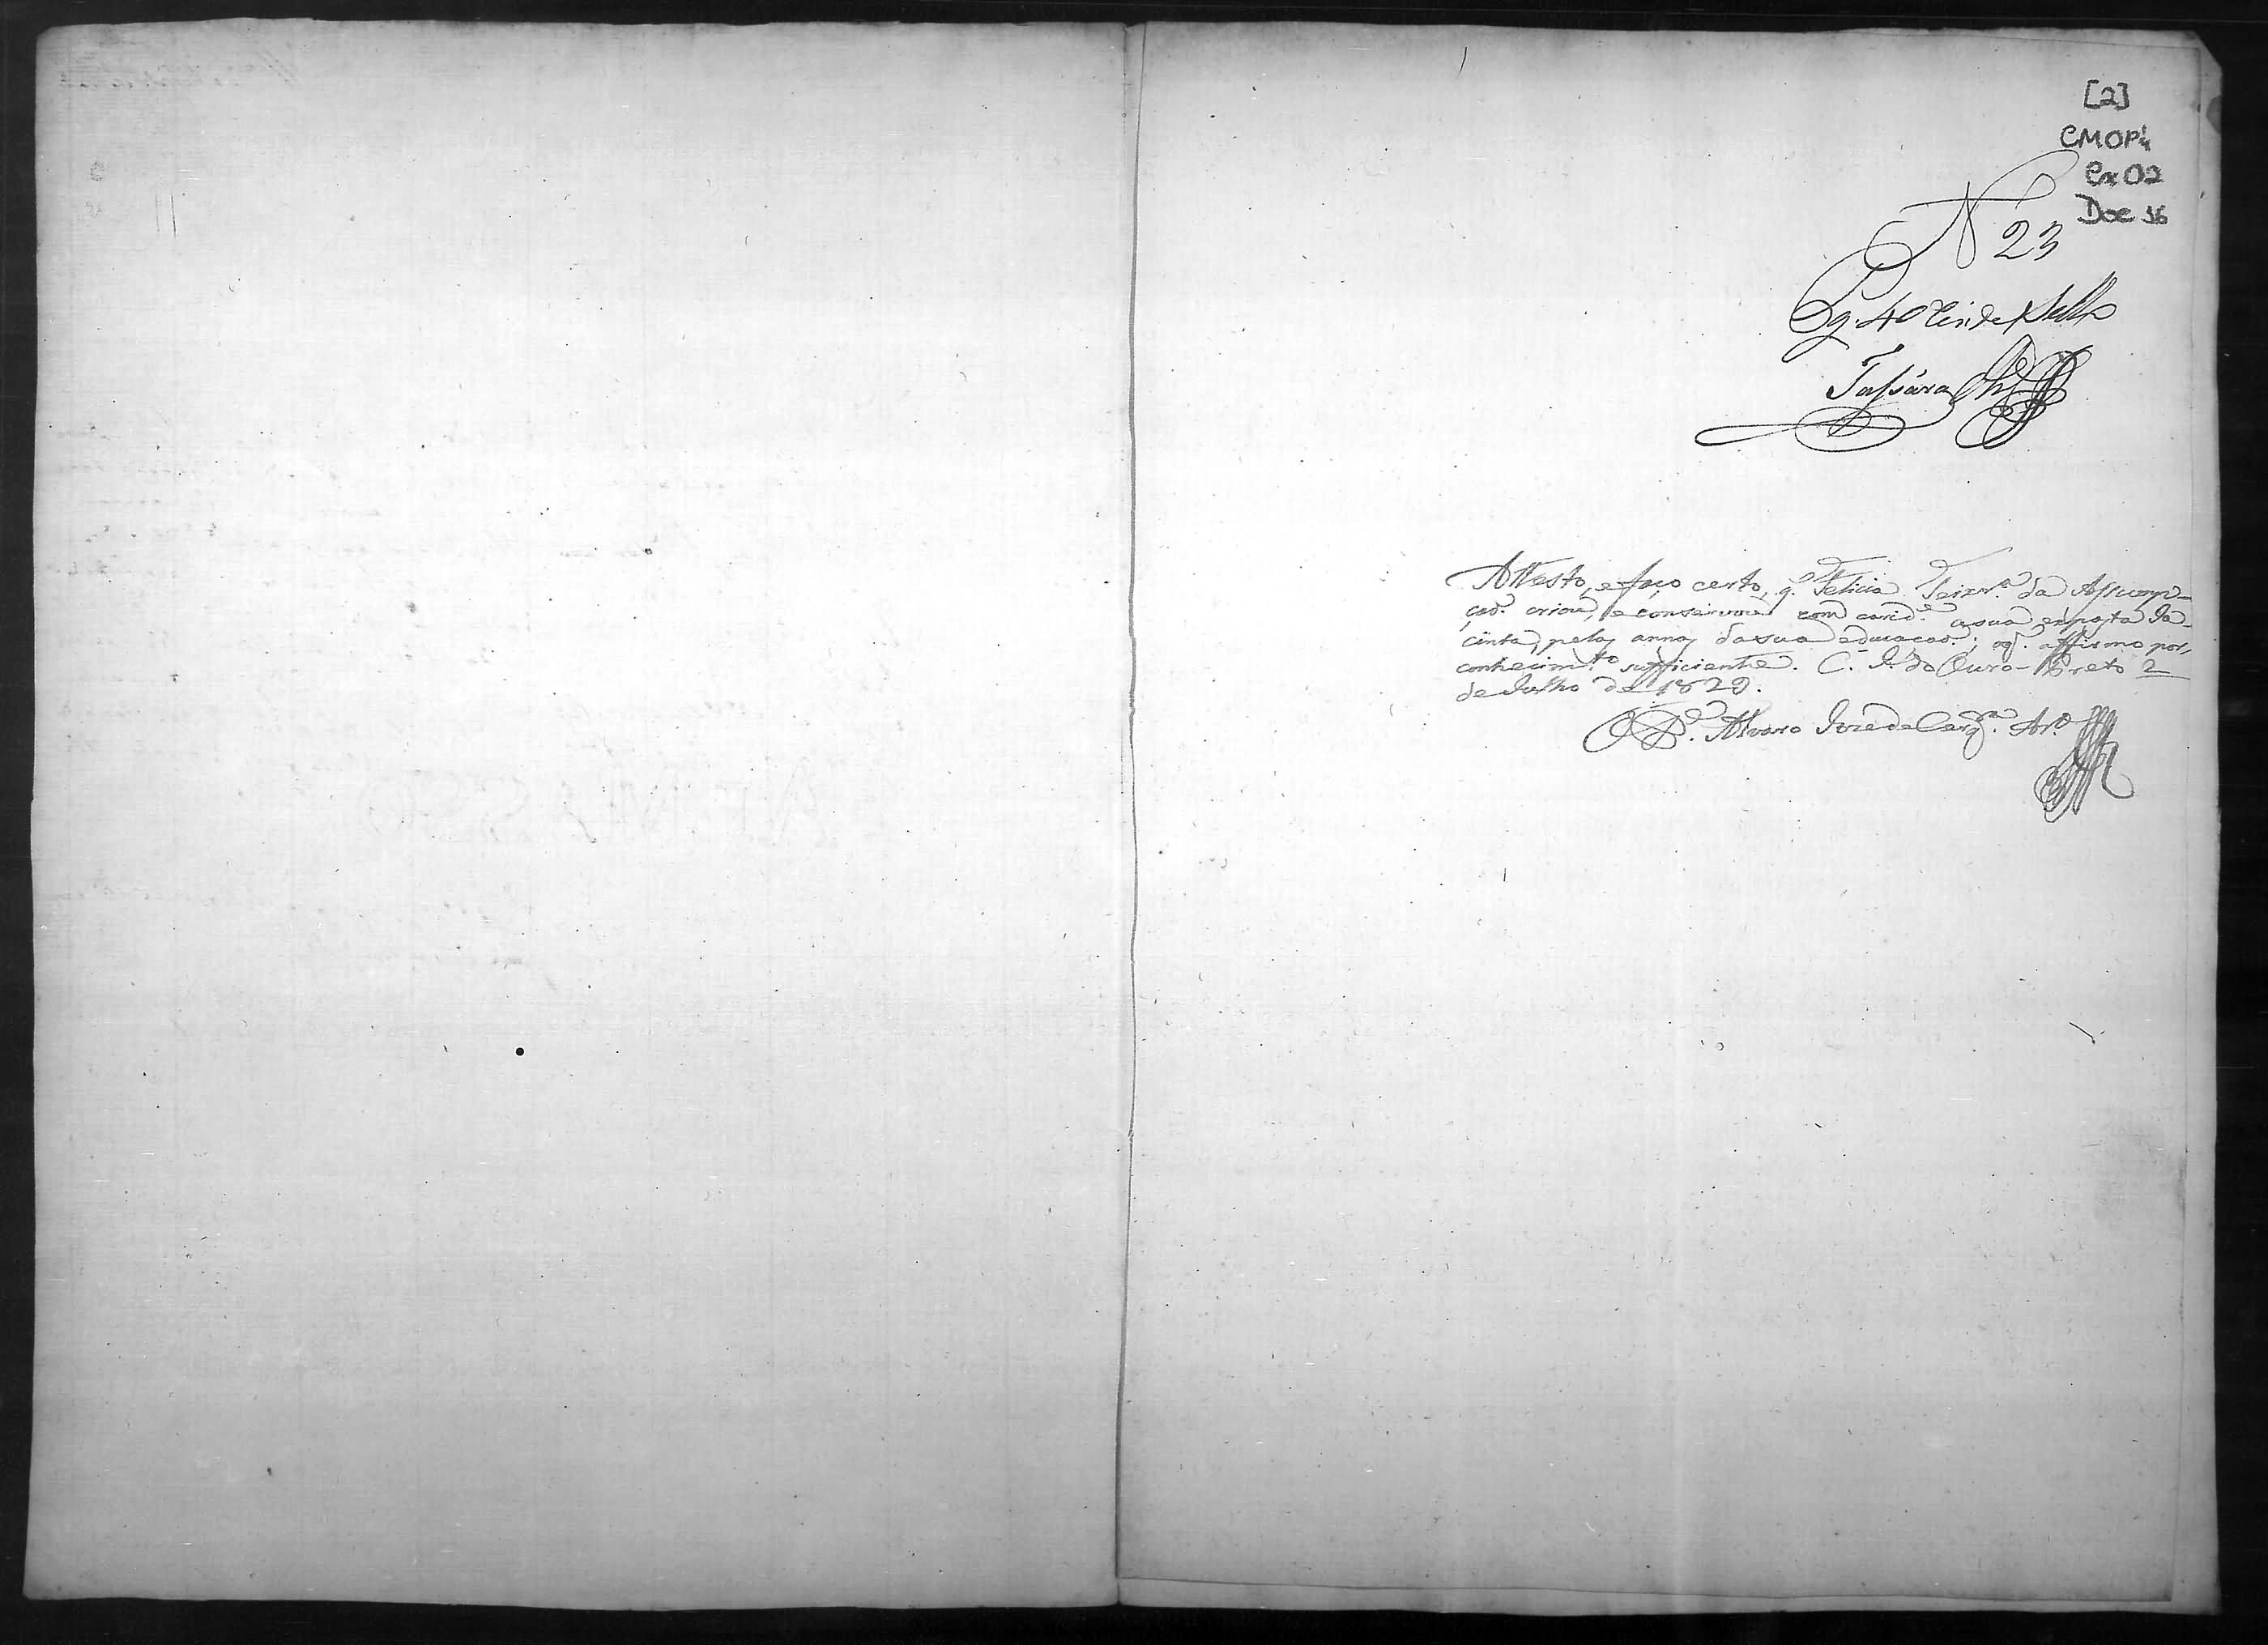 [2]
CMOP
Cx 02
Doc 36
N 23
Pg. 40 reis de Sello
Attesto, e faço certo, q. Felicia Teixr.ª da Assump-
çaõ. criou, e conservou com carid.e a sua exposta Ja-
cinta, pelos annos da sua educaçaõ.; o q. affirmo por
conhecim.to sufficiente. C. I. do Ouro-Preto 2
de Julho de 1829.
O P.e Alvaro Joze de Cerq.ra Ar.º